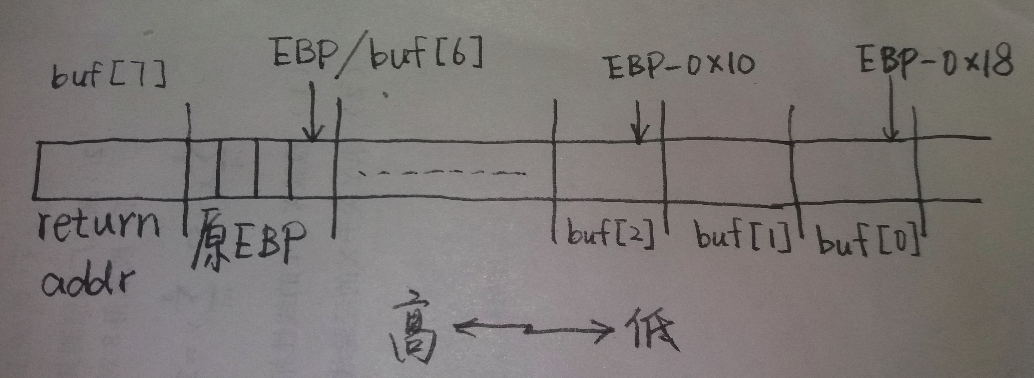 buf[7] EBP/buf[6] EBP-0x10 EBP-0x18
return 原EBP buf[2] buf[1] buf[0]
addr
高 低